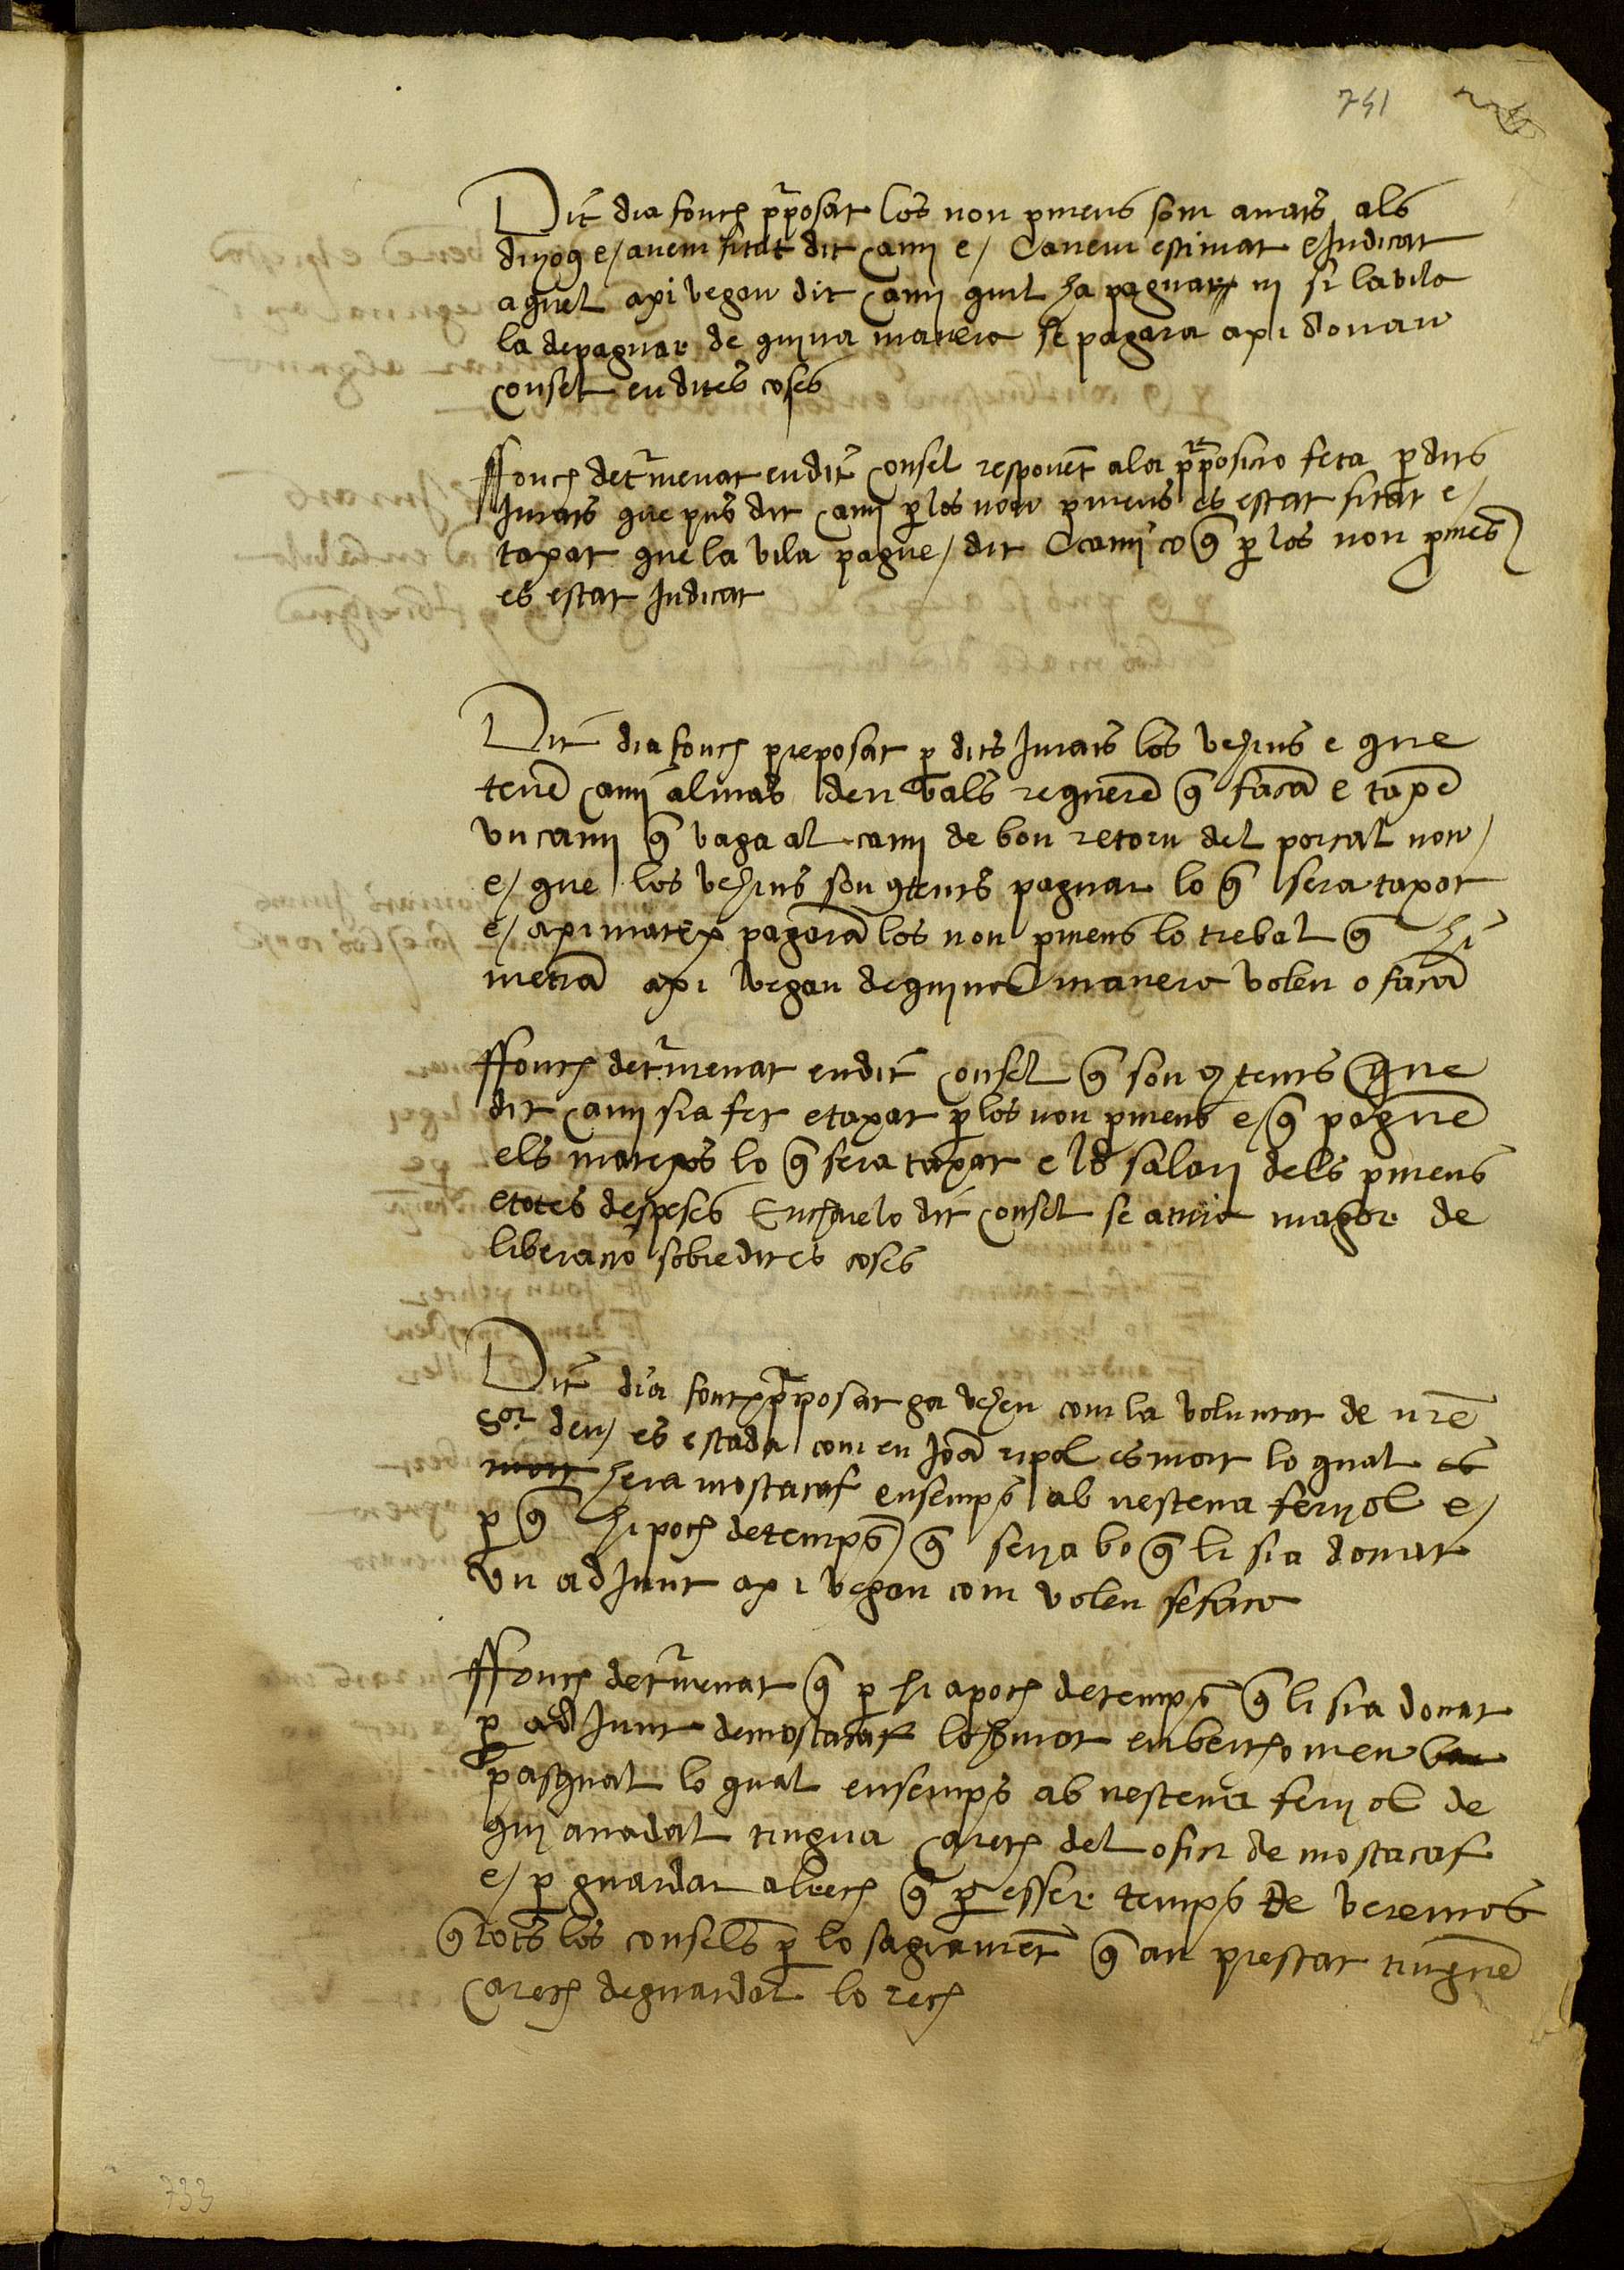 741
Dit dia fonch pposat los nou pmens som anats als
diyog e/ avem fitat dit cami e/ lavem estimat e Judicat
aquel axi vegau dit cami quil ha paguar ni si la vila
la de paguar de quina manera se pagara axi donau
consel en dites coses
ffonch detmenat en dit consel responet a la pposicio feta p dits
Jurats que pus dit cami p los nou pmens es estat fitat e/
taxat que la vila pague/ dit cami co q p los nou pmes
es estat Judicat
Dit dia fonch preposat p dits Jurats los vehins e que
tene cami al mas den vals reguere q faca e taxe
vn cami q vaga al cami de bon retorn del portal nou/
e/ que los vehins son 9tents paguar lo q sera taxat
e/ aximatex pagara los nou pmens lo trebal q hi
metra axi vegau de quina manera volen o faca
ffonch detmenat en dit consel q son 9tents que
dit cami sia fet e taxat p los nou pmens e/ q pague
els matexos lo q sera taxat e lo salari dels pmens
e totes despeses Enchuelo dit consel se aturo magor de
liberacio sobre dites coses
Dit dia fonch pposat ga vehen com la voluntat de nre
Sor deu/ es estada com en Joa ripol es mort lo qual es
mort hera mostacaf ensemps ab nesteva feriol e/
p q hi poch de temps q serya bo q li sia donat
vn ad Junt axi vegau com volen se faca
ffonch detmenat q p hi a poch de temps q li sia donat
p ad Junt de mostacaf lo honrat en bertomeu
pasqual lo qual ensemps ab nesteva feriol de
qui a nadal tingua carech del ofici de mostacaf
e/ p guardar al rech q p esser temps de veremes
q tots los consels p lo sagramet q an prestat tingue
carech de guardar lo rech
733